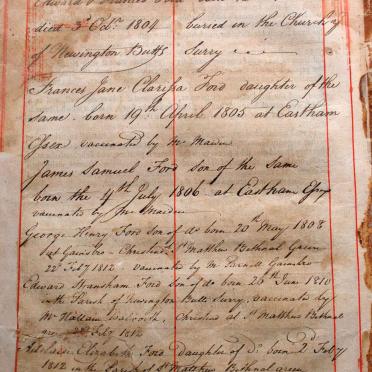 died 3d Octr. 1804 buried in the Church of
of Newington Butts Surry
Frances Jane Clarissa Ford daughter of the
same born 19th April 1805 at Eastham
Essex vaccinated by Mr Maiden
James Samuel Ford son of the same
born the 4th July 1806 at Eastham Essex
vaccinated by Mr Maiden
George Henry Ford son of do born 20th May 1808
at Christend St Matthew Bethnal Green
22d Feby 1812 vaccinated by Mr
Edward Ford son of do born 26th Jan 1810
in the Parish of Newington Butts Surry, vaccinated by
Mr Hallam Walworth, Christend at St Matthew Bethnal
22 Feby 1812
Elizabeth Ford Daughter of Do born 2d Feby
1812 in the Parish of St Matthew Bethnal green